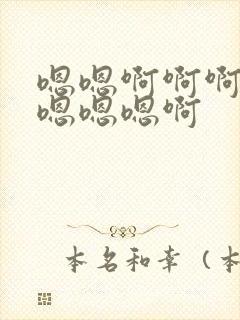 嗯嗯啊啊啊
嗯嗯嗯啊
本名和幸（本